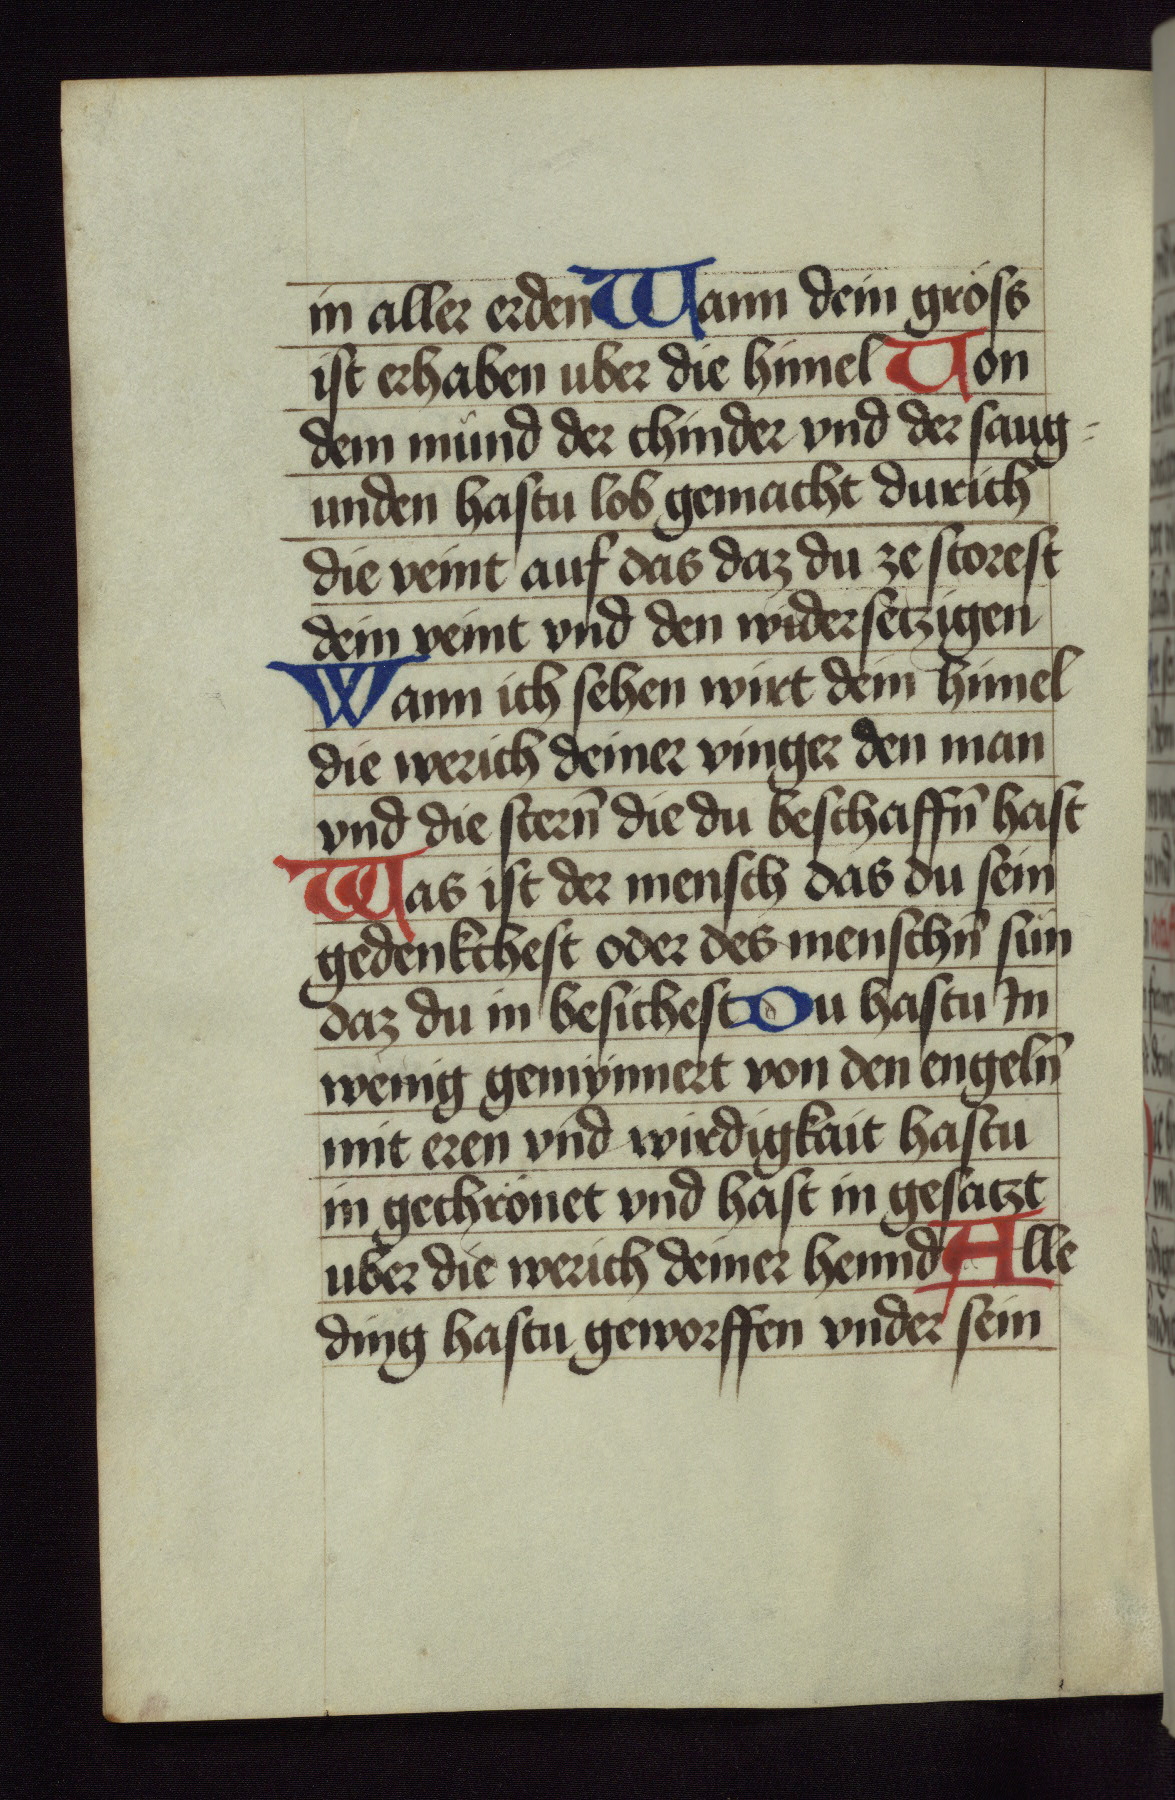 in aller erden Wann dein gröss
ist erhaben uber die himel Von
dem mund der chinder vnd der saug-
unden hastu lob gemacht durich
die veint auf das daz du ze storest
dein veint vnd den widersetzigen
Wann ich sehen wirt dein himel
die werich deiner vinger den man
vnd die stern̄ die du beschaffn̄ hast
Was ist der mensch das du sein
gedenkchest oder des menschn̄ sun
daz du in besichest Du hastu In
wenig gemynnert von den engeln̄
mit eren vnd wirdigkait hastu
in gechrönet vnd hast in gesatzt
uber die werich deiner hennd Alle
ding hastu geworffen vnder sein